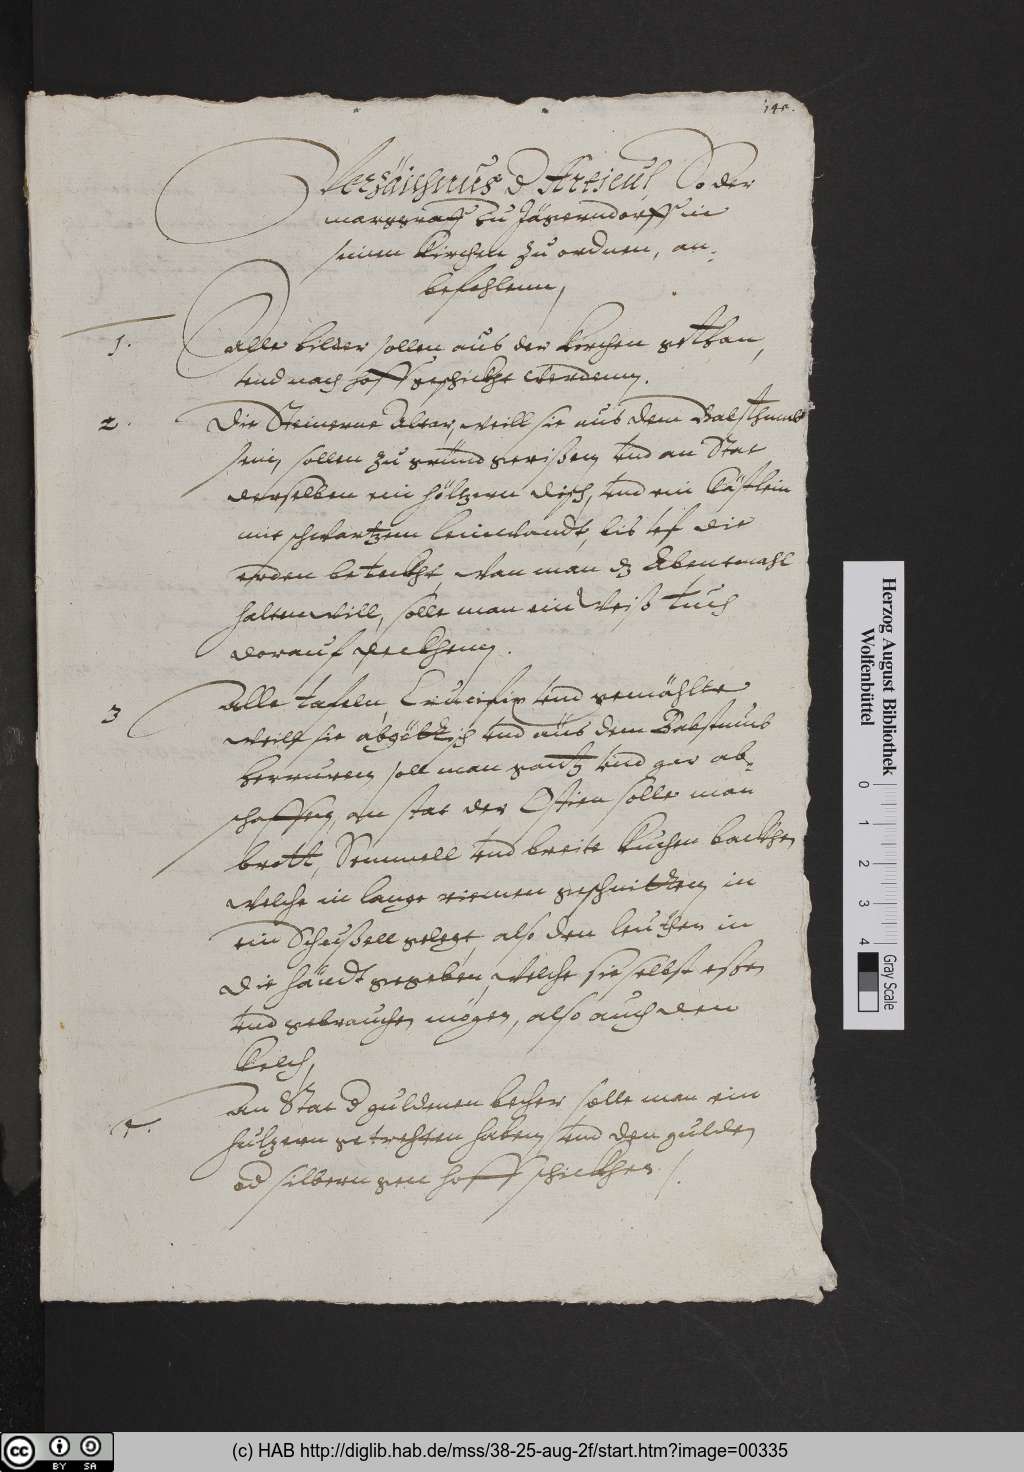 140.
Verzäichnus d Articul, So der
marggraff zu Jägerndorff in
seinen Kirchen zu ordnen, an-
befohlenn,
1. Alle bilder sollen aus der Kirchen gethan,
vnd nach Hoff geschickht werdenn.
2. Die Steinerne Altar, weill sie aus dem Babsthumb
sein, sollen zu grund gerißen, vnd an Stat
derselben ein höltzern disch, vnd ein Kästlein
mit schwartzem leinwandt, bis vf die
erden beteckht, wan man dz Abentmahl
halten will, solle man ein Weiß tuch
dorauf deckhenn.
3 Alle tafeln, Crucifix vnd gemählte
weill sie abgöttisch vnd aus dem Babstumb
herruren, soll man gantz vnd gar ab-
schaffen, an stat der Ostien solle man
brott, Semmell vnd breite Kuchen backhen
welche in lange riemen geschnitten, in
ein Schußell gelegt, also den leuthen in
die händt gegeben, welche sie selbst eßen
vnd gebrauchen mögen, also auch den
Kelch,
4. An Stat d guldenen becher solle man ein
hulzern getrehten haben, vnd den gulden
od silbern gen Hoff schickhen.
Herzog August Bibliothek
Wolfenbüttel
0 1 2 3 4
Gray Scale
cc BY SA
(c) HAB http://diglib.hab.de/mss/38-25-aug-2f/start.htm?image=00335